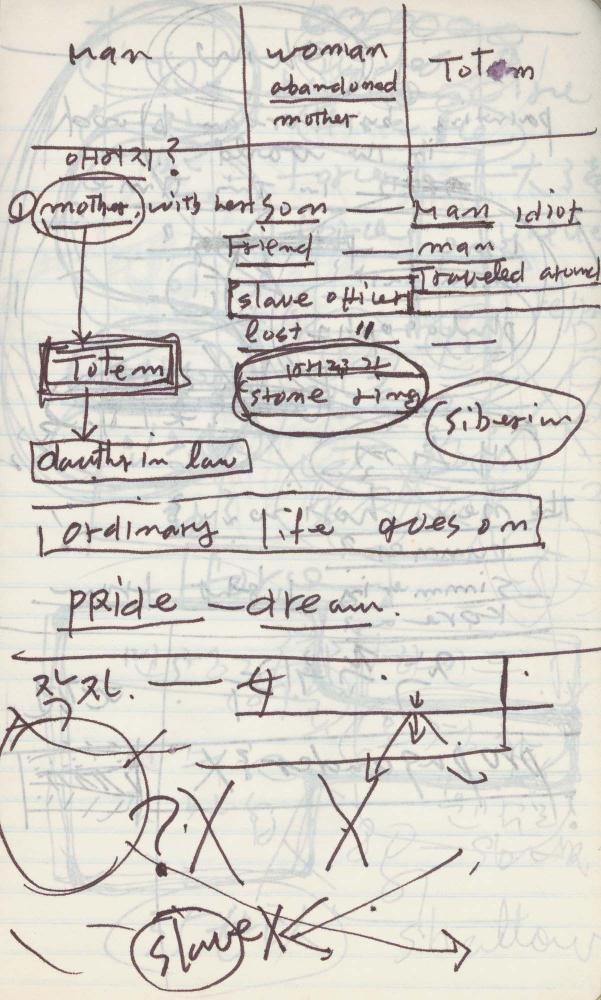 Man woman Totem
abandoned
mother
아버지?
① mother, with her son — Man idiot
Friend — man
slave officer Traveled around
lost "
Totem
stone ring
siberian
dauther in law
ordinary life goes on
PRide — dream.
?
? X X
slave X